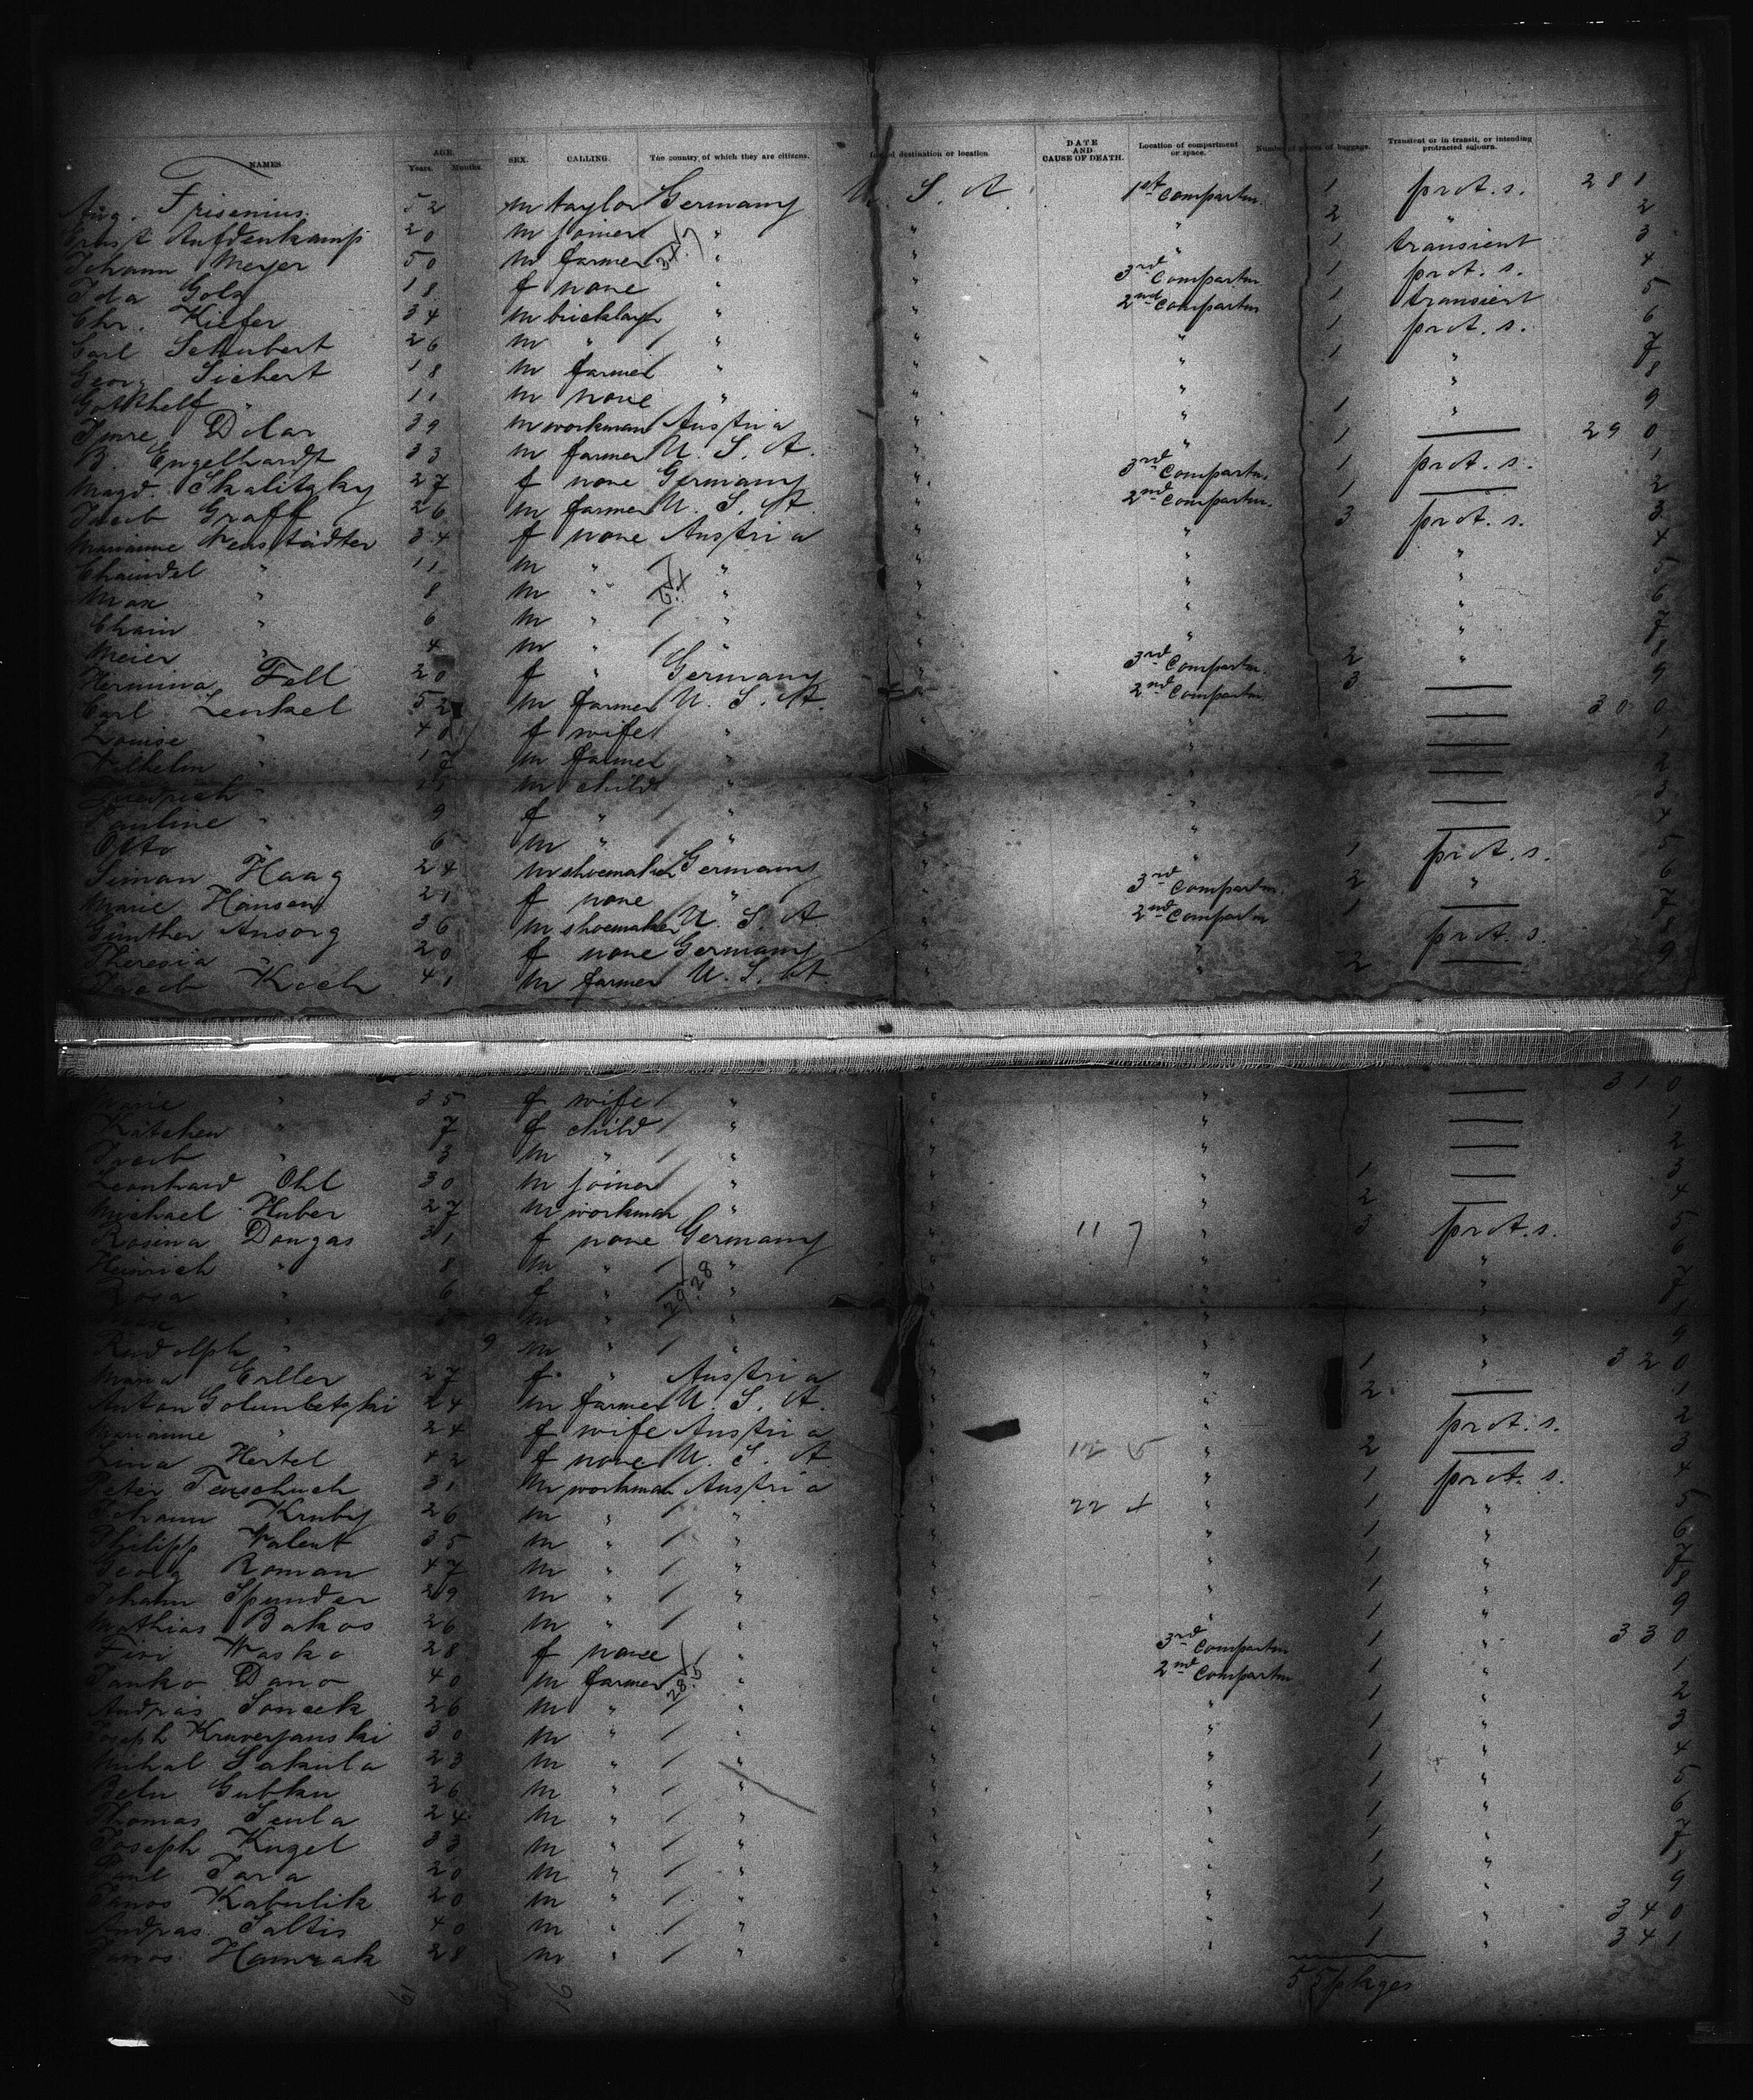 NAMES. AGE. Years. Months. SEX. CALLING. The country of which they are citizens. destination or location. DATE AND CAUSE OF DEATH. Location of compartment or space. Number of pieces of baggage. Transient or in transit, or intending protracted sojourn.
Aug. Frisenius. 52 m taylor Germany U. S. A. 1st Compartm. 1 prot. s. 281
Ernst Aufdenkamp 20 m joiner " " " 2 " 2
Johann Meyer 50 m farmer " " " 1 transient 3
Ida Golz 18 f none " " 3rd Compartm 1 prot. s. 4
Chr. Kiefer 34 m bricklayer " " 2nd Compartm 1 transient 5
Carl Schubert 26 m " " " " 1 prot. s. 6
Georg Sichert 18 m farmer " " " 1 " 7
Gotthelf " 11 m none " " " " 8
Imre Dolar 39 m workman Austria " " 1 " 9
B. Engelhardt 33 m farmer U. S. A. " " 1 — 290
Magd. Skalitzky 27 f none Germany " 3rd Compartm. 1 prot. s. 1
Jacob Graff 26 m farmer U. S. A. " 2nd Compartm. 1 — 2
Marianne Neustädter 34 f none Austria " " 3 prot. s. 3
Chaindel " 11 m " " " " " 4
Max " 8 m " " " " " 5
Chain " 6 m " " " " " 6
Meier " 4 m " " " " " 7
Hermina Fell 20 f " Germany " 3rd Compartm. 2 " 8
Carl Zenkel 52 m farmer U. S. A. 2nd Compartm 3 — 9
Louise " 40 f wife " " " — 300
Wilhelm " 17 m farmer " " — 1
Friedrich " 11 m child " — 2
Pauline " 9 f " " " " — 3
Otto " 6 m " " " " — 4
Simon Haag 24 m shoemaker Germany " " 1 prot. s. 5
Marie Hansen 21 f none " " 3rd Compartm. 2 " 6
Günther Ansorg 36 m shoemaker U. S. A. " 2nd Compartm 1 — 7
Theresia " 20 f none Germany " " prot. s. 8
Jacob Koch 41 m farmer U. S. A. " " 2 — 9
Marie " 35 f wife " " " — 310
Kätchen " 7 f child " " " — 1
Jacob " 3 m " " " " — 2
Leonhard Ohl 30 m joiner " " " 1 — 3
Michael Huber 27 m workman " " " 2 — 4
Rosina Dongas 31 f none Germany " 11 7 " 3 prot. s. 5
Heinrich " 8 m " " " " " 6
Rosa " 6 f " " " " " 7
" m " " " " "
Rudolph " 9 m " " " " " 9
Maria Erller 27 f " Austria " " 1 " 320
Anton Golumbetzki 24 m farmer U. S. A. " " 2 — 1
Marianne " 24 f wife Austria " " prot. s. 2
Lina Hertel 42 f none U. S. A. " " 2 — 3
Peter 31 m workman Austria " " 1 prot. s. 4
Johann Kruby 26 m " " " 22 " 1 " 5
Philipp Valent 35 m " " " " 1 " 6
Georg Roman 47 m " " " " 1 " 7
Johann Spunder 29 m " " " " 1 " 8
Mathias Bakos 26 m " " " " 1 " 9
Wasko 28 f none " " 3rd Compartm 1 " 330
Janko Dano 40 m farmer " " 2nd Compartm 1 " 1
András 26 m " " " " 1 " 2
Joseph 30 m " " " " 1 " 3
Michal Sakula 23 m " " " " 1 " 4
Gubku 26 m " " " " 1 " 5
Thomas Senla 24 m " " " " 1 " 6
Joseph Kugel 33 m " " " " 1 " 7
Paul Tara 20 m " " " " 1 "
Janos Kabulik 20 m " " " " 1 " 9
Andras Saltis 40 m " " " " 1 " 340
Janos Hamrak 28 m " " " " 1 " 341
55 pkges